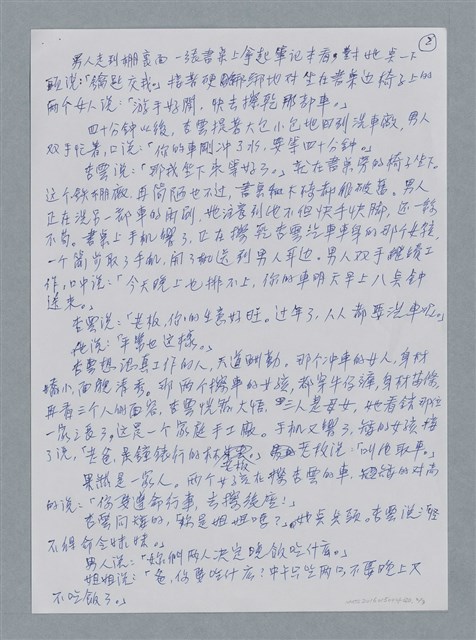 ②
男人走到棚裏面一張書桌上拿起筆記本看,對她点一下
頭說:「鑰匙交我。」接著硬綁綁地对坐在書桌边椅子上的
兩个女人說:「游手好閒,快去擦乾那部車。」
四十分钟以後,杏雲提著大包小包地回到洗車廠,男人
双手忙著,口說:「你的車剛冲了水,要等四十分钟。」
杏雲說:「那我坐下來等好了。」就在書桌旁的椅子坐下。
这个铁棚廠,再简陋也不过,書桌和木椅都相破舊。男人
正在洗另一部車的雨刷,她注意到他不但快手快脚,还一絲
不苟。書桌上手机响了,正在擦乾杏雲汽車車身的那个女孩,
一个箭步取了手机,開了机送到男人耳边。男人双手继續工
作,口中說:「今天晚上也排不上,你的車明天早上八点钟
送來。」
杏雲說:「老板,你们的生意好旺。过年了,人人都要洗車啦。」
他說:「平常也这樣。」
杏雲想認真工作的人,天道酬勤,那个冲車的女人,身材
矮小,面貌清秀。那两个擦車的女孩,都穿牛仔褲,身材苗條,
再看三个人的面容,杏雲恍然大悟,三人是母女,她看錶那位
一家之長了。这是一个家庭手工廠。手机又响了,矮的女孩接
了說,「老爸,是鐘錶行的林老板。」老板說:「叫他取車。」
果然是一家人。两个女孩在擦杏雲的車,矮的对高
的說:「你要遵命行事,去擦後座!」
杏雲问矮的,妳是姐姐嗎?」她点点頭。杏雲說:「怪
不得命令妹妹。」
男人說:「妳们两人决定晚飯吃什麼。」
姐姐說:「爸,你要吃什么!中午只吃两口,不要晚上又
不吃飯了。」